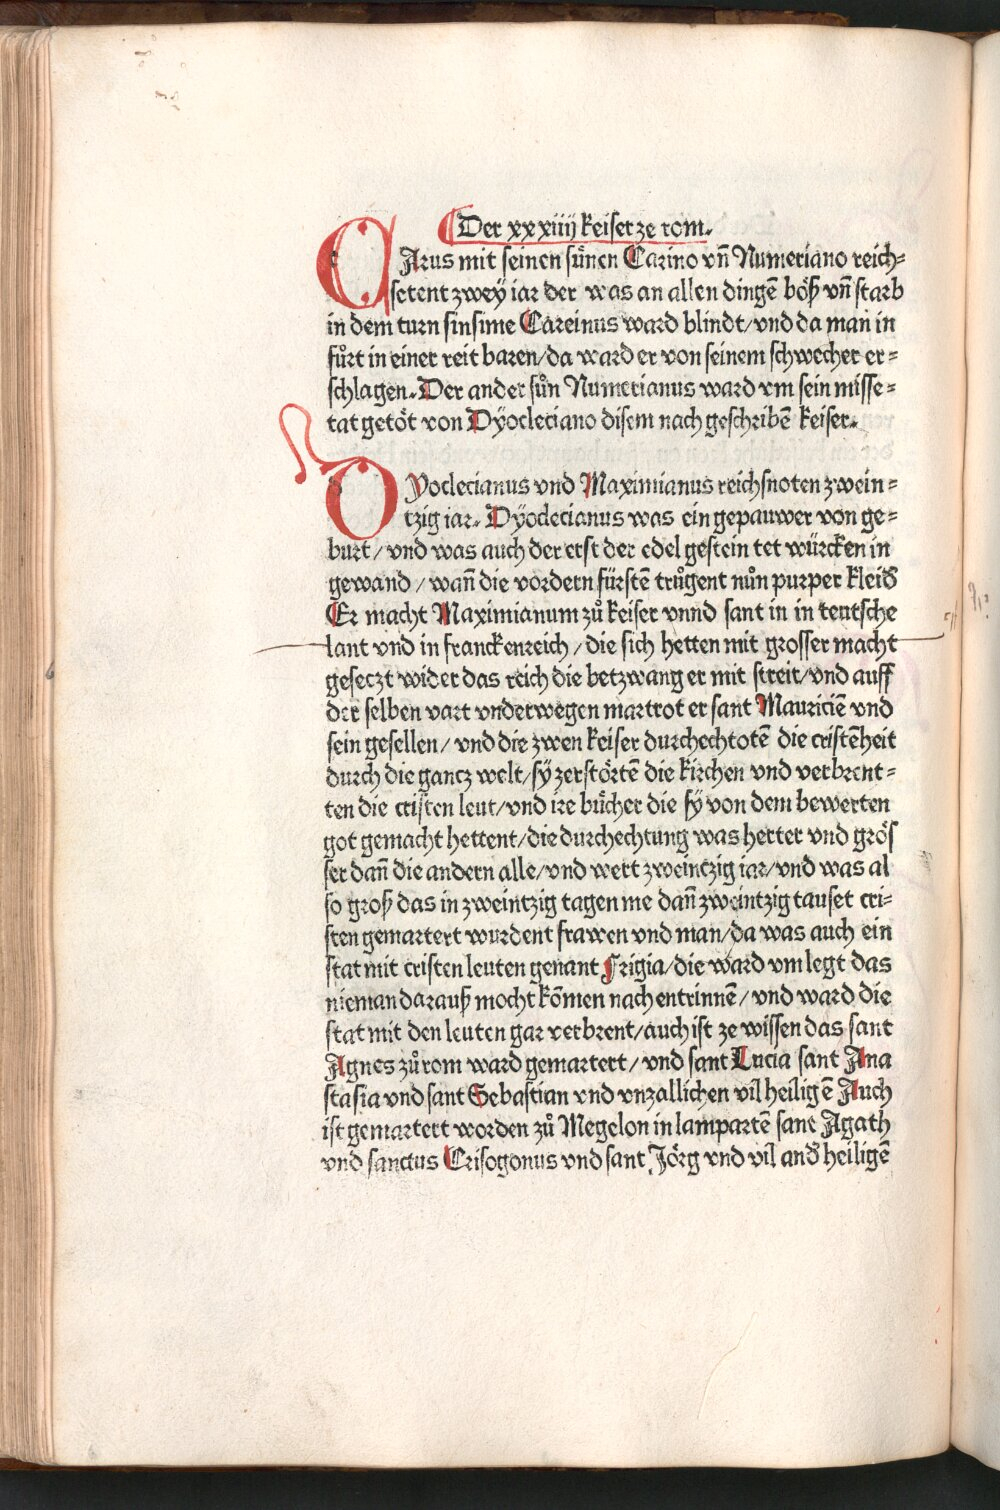 Der xxxiiij keiser ze rom.
CArus mit seinen sűnen Carino vñ Numeriano reich⸗
setent zwey iar der was an allen dingē bőß vñ starb
in dem turn sinsime Careinus ward blindt/vnd da man in
fůrt in einer reit baren/da ward er von seinem schwecher er⸗
schlagen. Der ander sůn Numerianus ward vm sein misse⸗
tat getöt von Dÿocleciano disem nach geschribē keiser.
DYoclecianus vnd Maximianus reichsnoten zwein⸗
tzig iar. Dÿoclecianus was ein gepauwer von ge⸗
burt/ vnd was auch der erst der edel gestein tet würcken in
gewand/ wañ die vordern fürstē trůgent nůn purper kleid̕
Er macht Maximianum zů keiser vnnd sant in in teutsche
lant vnd in franckenreich/ die sich hetten mit grosser macht
geseczt wider das reich die betzwang er mit streit/vnd auff
der selben vart vnderwegen martrot er sant Mauriciē vnd
sein gesellen/ vnd die zwen keiser durchechtotē die cristēheit
durch die gancz welt/sÿ zerstörtē die kirchen vnd verbrent⸗
ten die cristen leut/vnd ire bůcher die sÿ von dem bewerten
got gemacht hettent/die durchechtung was herter vnd grös
ser dañ die andern alle/vnd wert zweintzig iar/vnd was al
so groß das in zweintzig tagen me dañ zweintzig tauset cri⸗
sten gemartert wurdent frawen vnd man/da was auch ein
stat mit cristen leuten genant Frigia/die ward vm legt das
nieman darauß mocht kōmen nach entrinnē/ vnd ward die
stat mit den leuten gar verbrent/auch ist ze wissen das sant
Agnes zů rom ward gemartert/ vnd sant Lucia sant Ana
stasia vnd sant Sebastian vnd vnzallichen vil heiligē Auch
ist gemartert worden zů Megelon in lampartē sant Agath
vnd sanctus Crisogonus vnd sant Jörg vnd vil and̕ heiligē